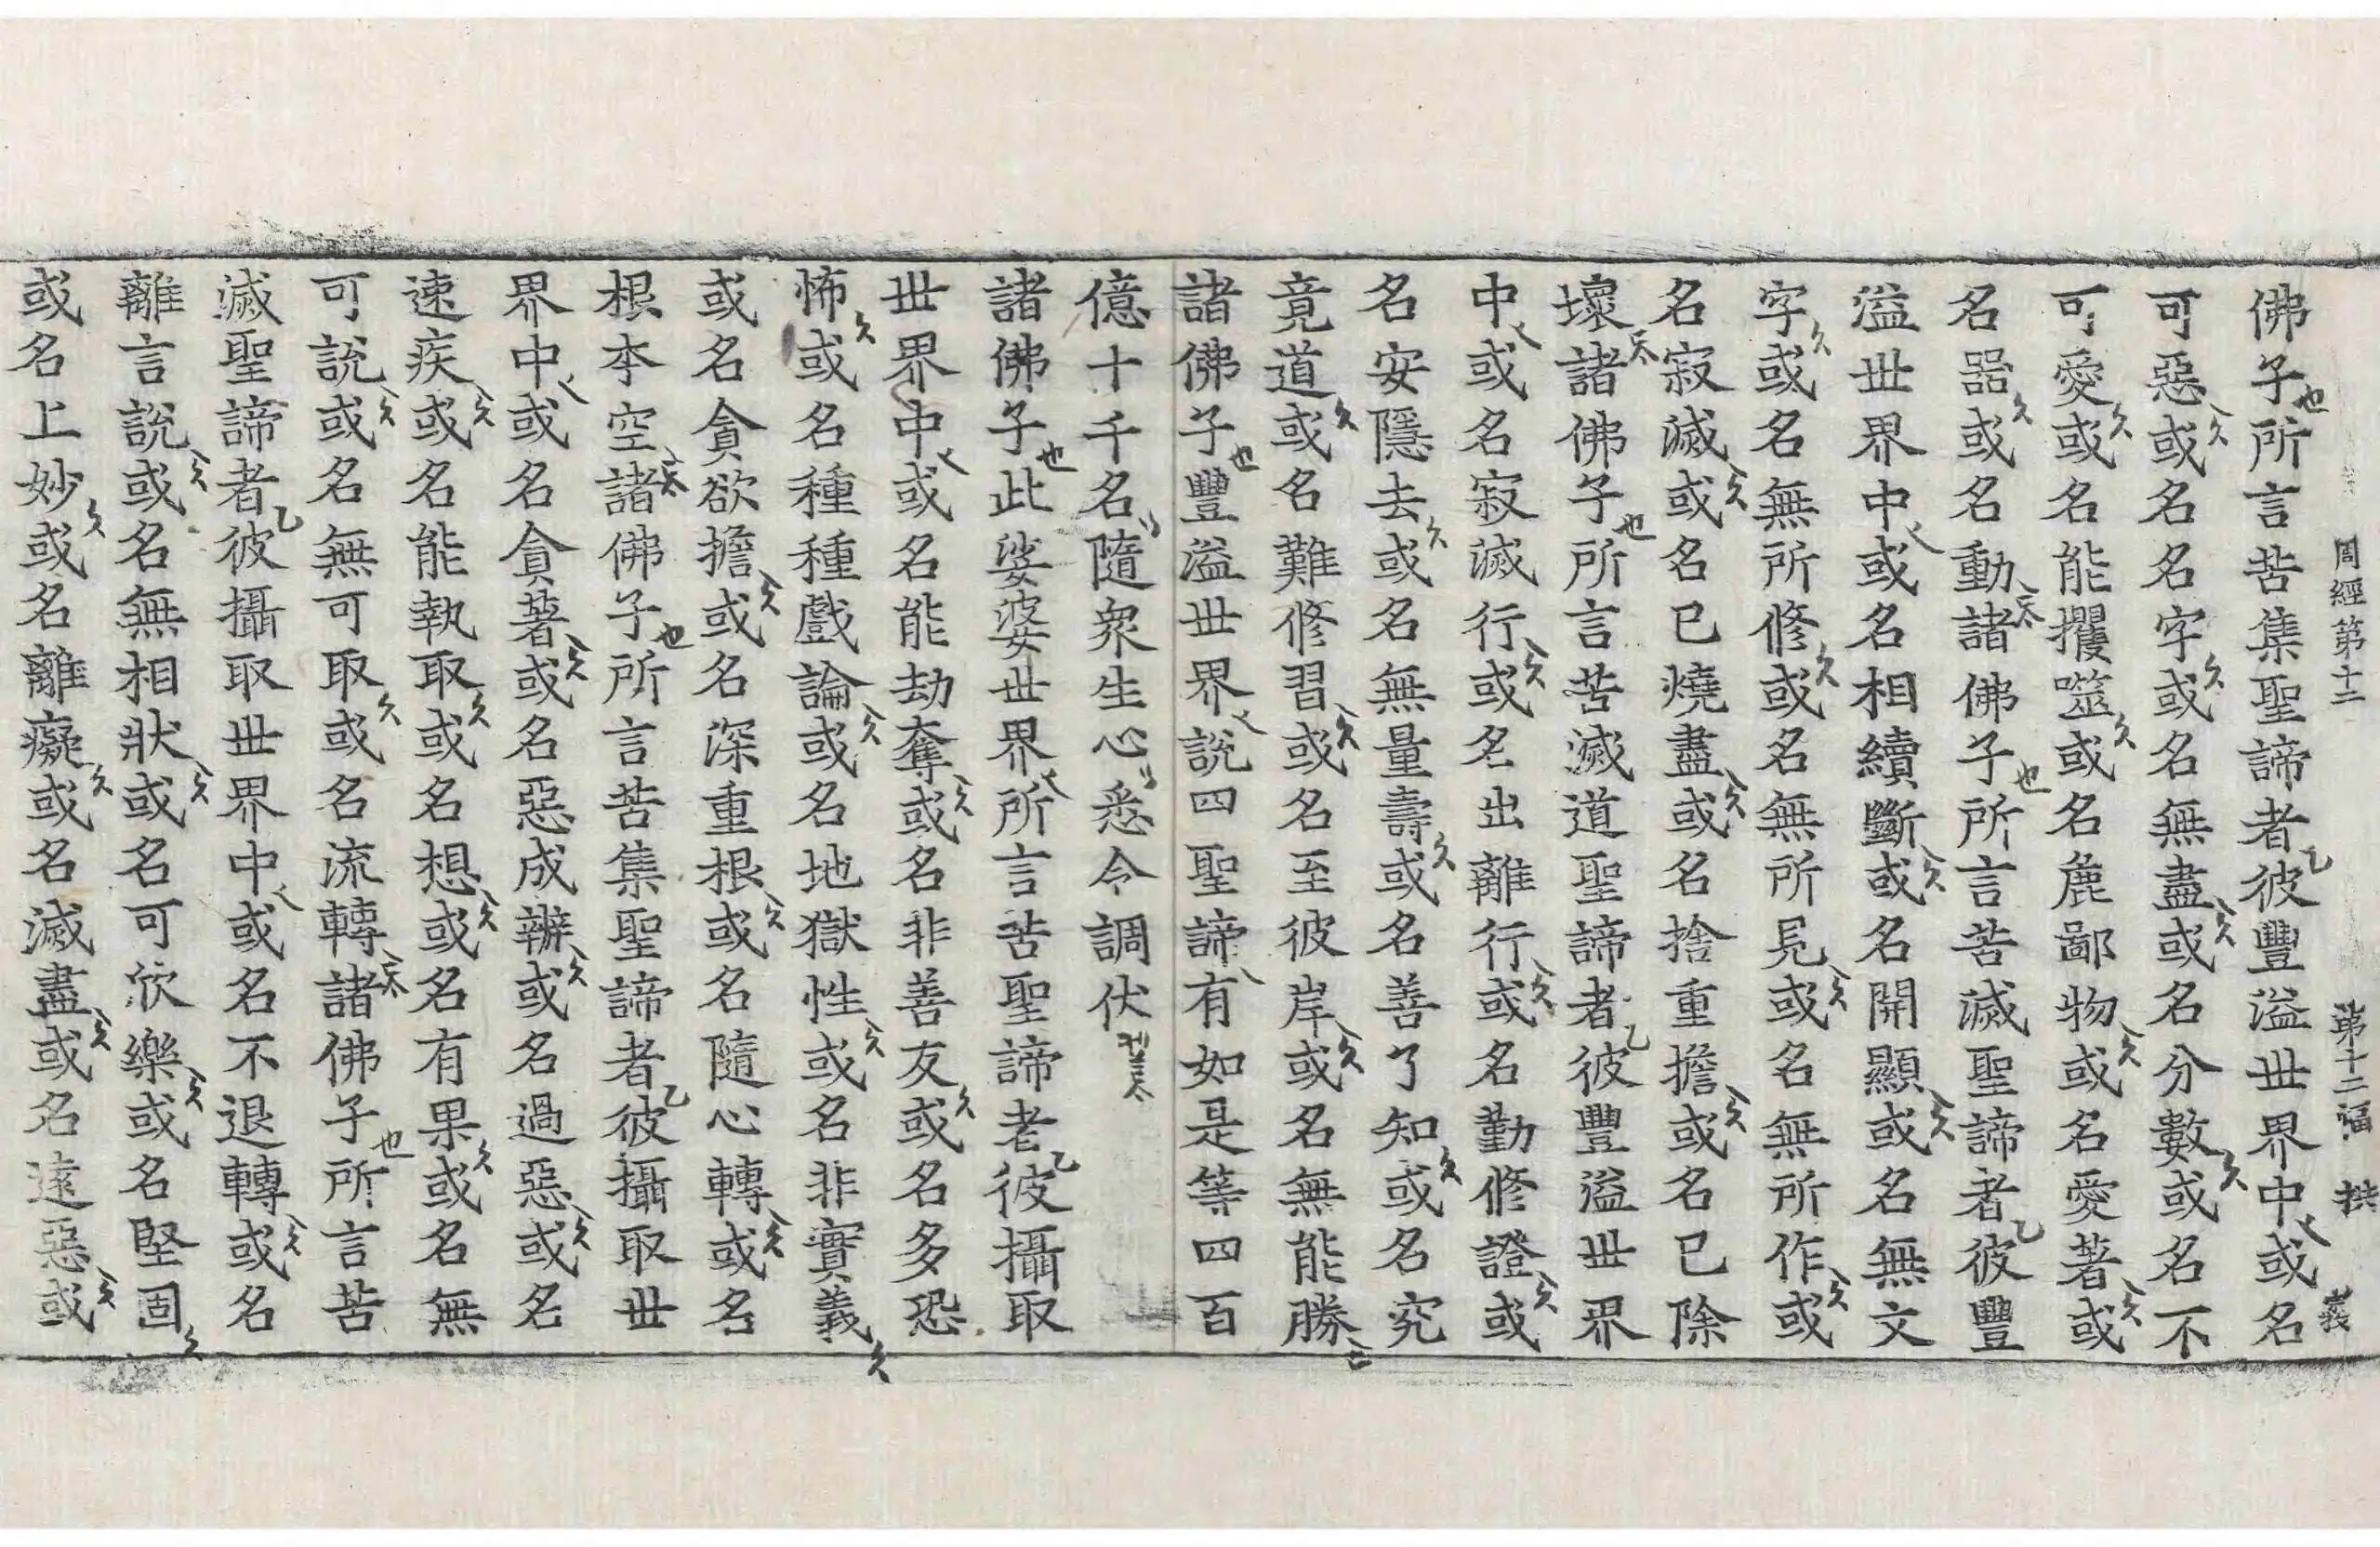 周經第十二 第十二福 拱 義
佛子所言苦集聖諦者彼豐溢世界中或名
可惡或名名字或名無盡或名分數或名不
可愛或名能攫噬或名麁鄙物或名愛著或
名器或名動諸佛子所言苦滅聖諦者彼豐
溢世界中或名相續斷或名開顯或名無文
字或名無所修或名無所見或名無所作或
名寂滅或名已燒盡或名捨重擔或名已除
壞諸佛子所言苦滅道聖諦者彼豐溢世界
中或名寂滅行或名出離行或名勤修證或
名安隱去或名無量壽或名善了知或名究
竟道或名難修習或名至彼岸或名無能勝
諸佛子豐溢世界說四聖諦有如是等四百
億十千名隨衆生心悉令調伏
諸佛子此娑婆世界所言苦聖諦者彼攝取
世界中或名能劫奪或名非善友或名多恐
怖或名種種戲論或名地獄性或名非實義
或名貪欲擔或名深重根或名隨心轉或名
根本空諸佛子所言苦集聖諦者彼攝取世
界中或名貪著或名惡成辦或名過惡或名
速疾或名能執取或名想或名有果或名無
可說或名無可取或名流轉諸佛子所言苦
滅聖諦者彼攝取世界中或名不退轉或名
離言說或名無相狀或名可欣樂或名堅固
或名上妙或名離癡或名滅盡或名遠惡或